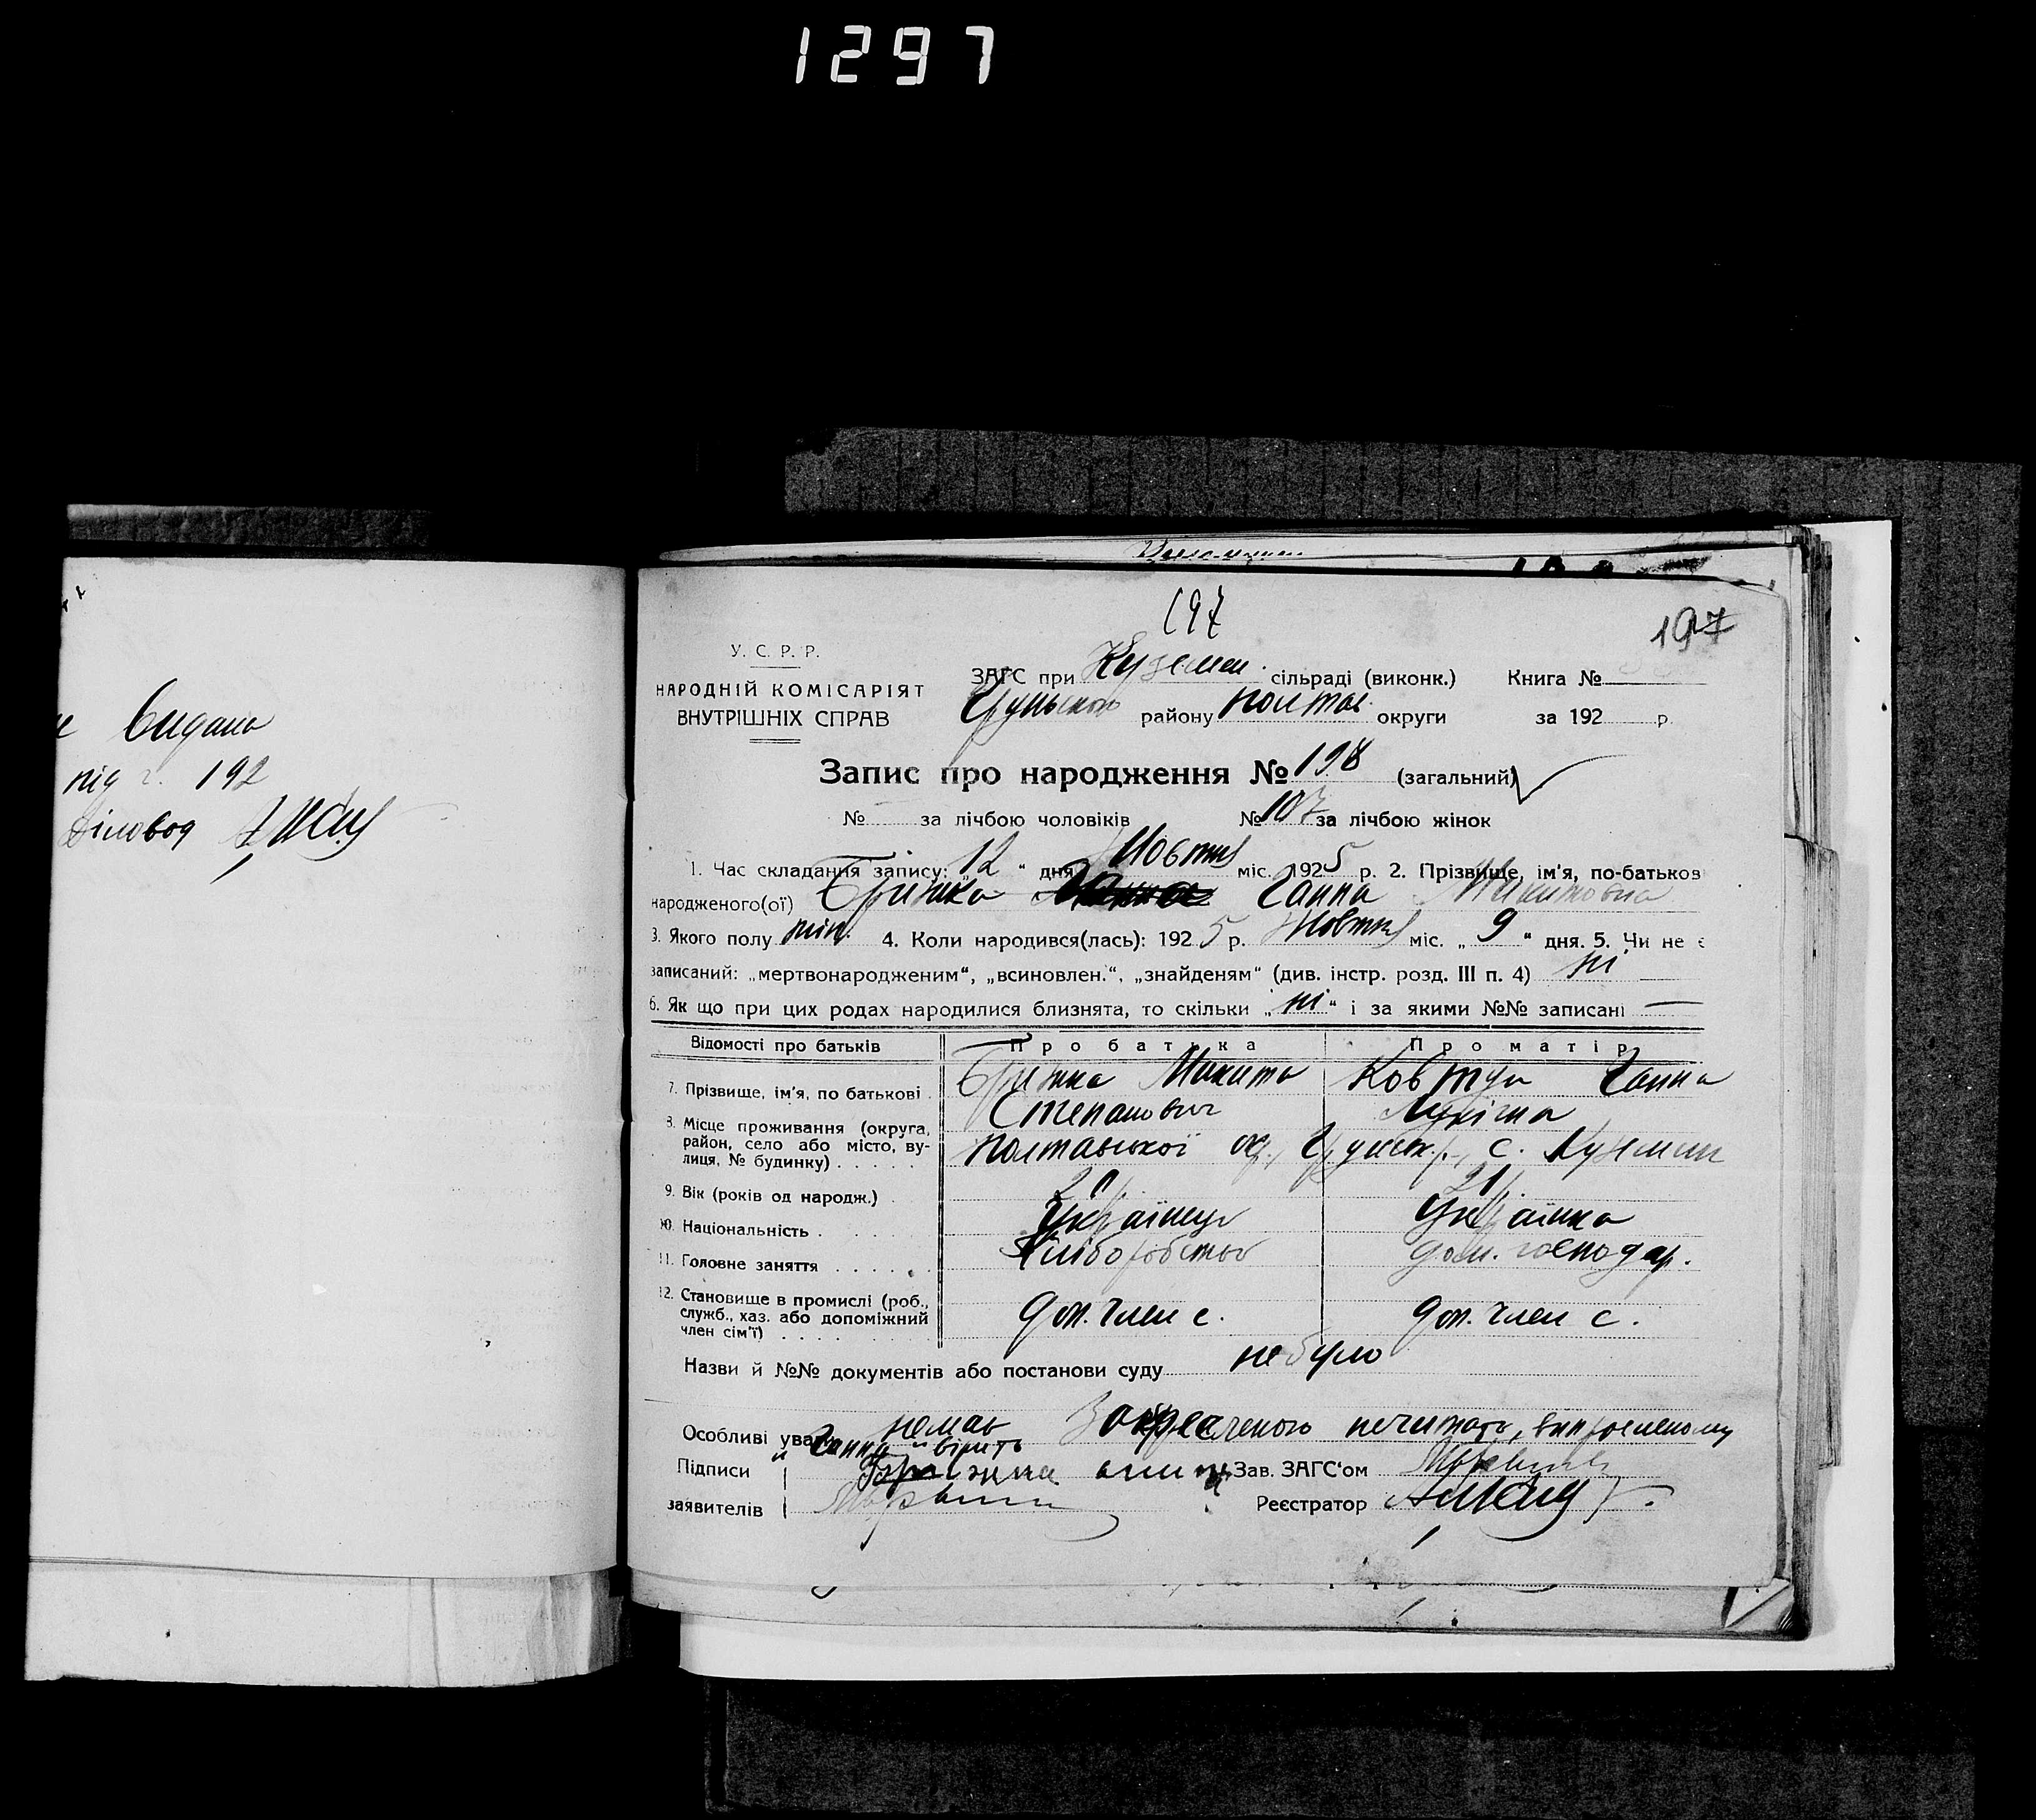 1297
видано
під г. 192
діловод
197
197
У. С. Р. Р.
НАРОДНІЙ КОМІСАРІЯТ
ВНУТРІШНІХ СПРАВ
ЗАГС при Куземен. сільраді (виконк.) Книга №
Грунського району Полтав. округи за 192 р.
Запис про народження № 198 (загальний)
№ за лічбою чоловіків № 107 за лічбою жінок
1. Час складання запису: „12“ дня Жовтня міс. 1925 р. 2. Прізвище, ім'я, по-батьков
народженого(ої) Брижка Ганна Микитовна
3. Якого полу жін. 4. Коли народився(лась): 1925 р. Жовтня міс. „9“ дня. 5. Чи не є
записаний: „мертвонародженим“, „всиновлен.“, „знайденям“ (див. інстр. розд. III п. 4) ні
6. Як що при цих родах народилися близнята, то скільки „ні“ і за якими №№ записані —
Відомості про батьків Про батька Про матір
7. Прізвище, ім'я, по батькові Брижка Микита Ковтун Ганна
Степанович Лукічна
8. Місце проживання (округа, район, село або місто, вулиця, № будинку) Полтавської окр., Грунськ. р., с. Куземин
9. Вік (років од народж.) 21
10. Національність Українець Українка
11. Головне заняття Хліборобство дом. господар.
12. Становище в промислі (роб., служб., хаз. або допоміжний член сім'ї) доп. член с. доп. член с.
Назви й №№ документів або постанови суду не було
Особливі уваги немає Закресленого нечитать, виправленому
„Ганна“ вірить
Підписи Зав. ЗАГС'ом
заявителів Реєстратор